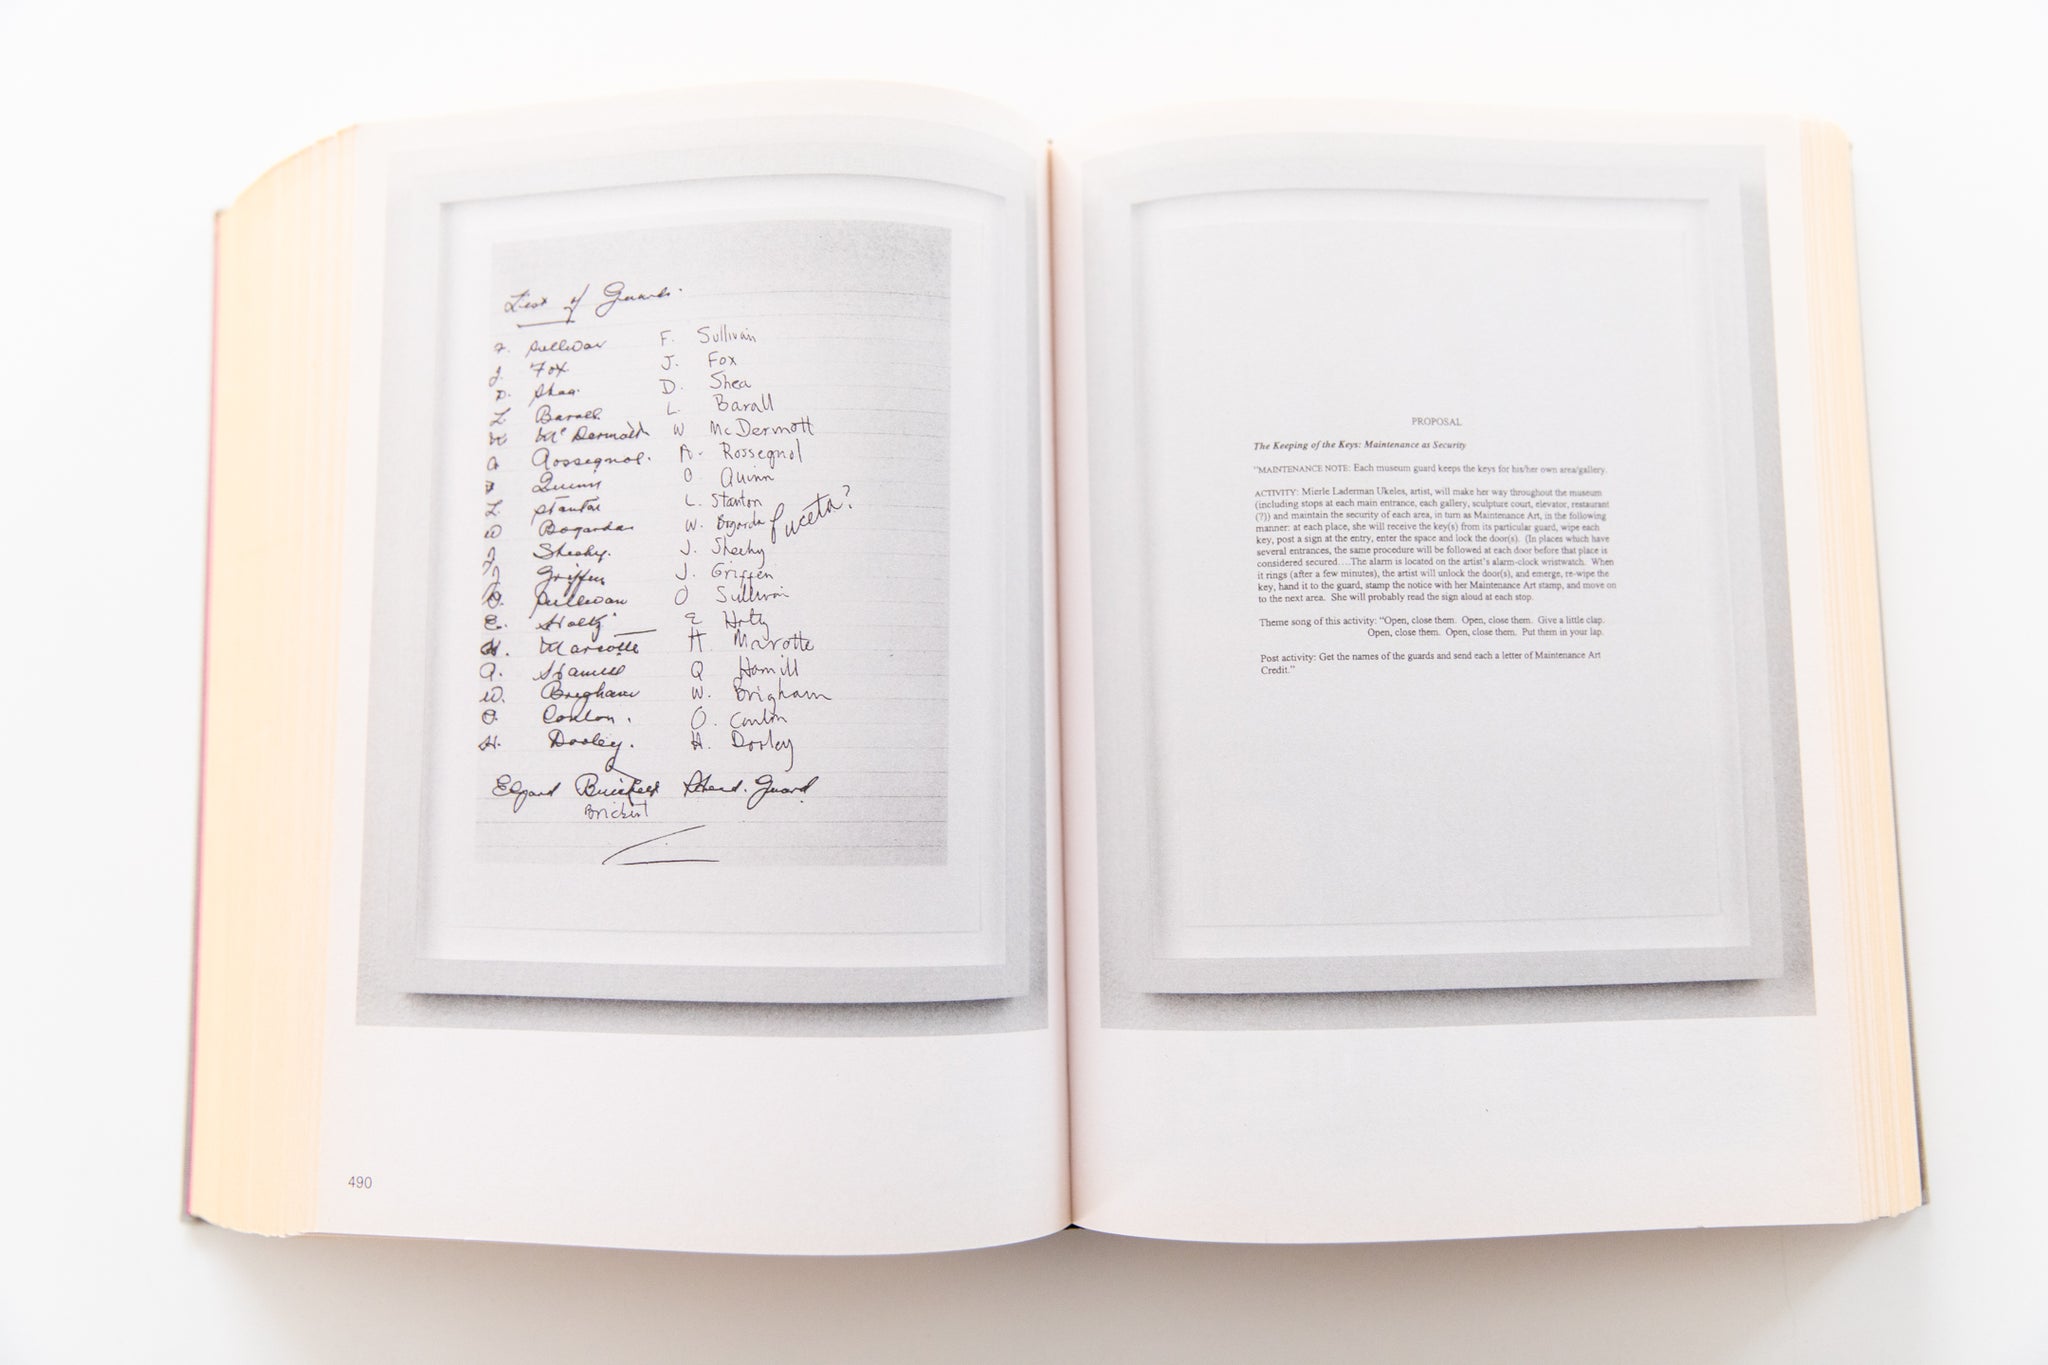 List of Guards.
F. Sullivan F. Sullivan
J. Fox J. Fox
D. Shea D. Shea
L Barall L. Barall
W McDermott W McDermott
A Rossegnol. A. Rossegnol
Quinn O. Quinn
L. Stanton L. Stanton
W Bogardas W. Bogarda
J Sheehy. J. Sheehy
J Griffen J. Griffen
O. Sullivan O Sullivan
E. Holtz E Hotz
H. Marcotte H Marotte
A. Hamill Q Hamill
W. Brigham W. Brigham
O. Conlon. O. Conlon
H. Dooley. H. Dooley
Edgard Head. Guard
Brickert
490
PROPOSAL
The Keeping of the Keys: Maintenance as Security
"MAINTENANCE NOTE: Each museum guard keeps the keys for his/her own area/gallery.
ACTIVITY: Mierle Laderman Ukeles, artist, will make her way throughout the museum
(including stops at each main entrance, each gallery, sculpture court, elevator, restaurant
(?)) and maintain the security of each area, in turn as Maintenance Art, in the following
manner: at each place, she will receive the key(s) from its particular guard, wipe each
key, post a sign at the entry, enter the space and lock the door(s). (In places which have
several entrances, the same procedure will be followed at each door before that place is
considered secured....The alarm is located on the artist's alarm-clock wristwatch. When
it rings (after a few minutes), the artist will unlock the door(s), and emerge, re-wipe the
key, hand it to the guard, stamp the notice with her Maintenance Art stamp, and move on
to the next area. She will probably read the sign aloud at each stop.
Theme song of this activity: "Open, close them. Open, close them. Give a little clap.
Open, close them. Open, close them. Put them in your lap.
Post activity: Get the names of the guards and send each a letter of Maintenance Art
Credit."